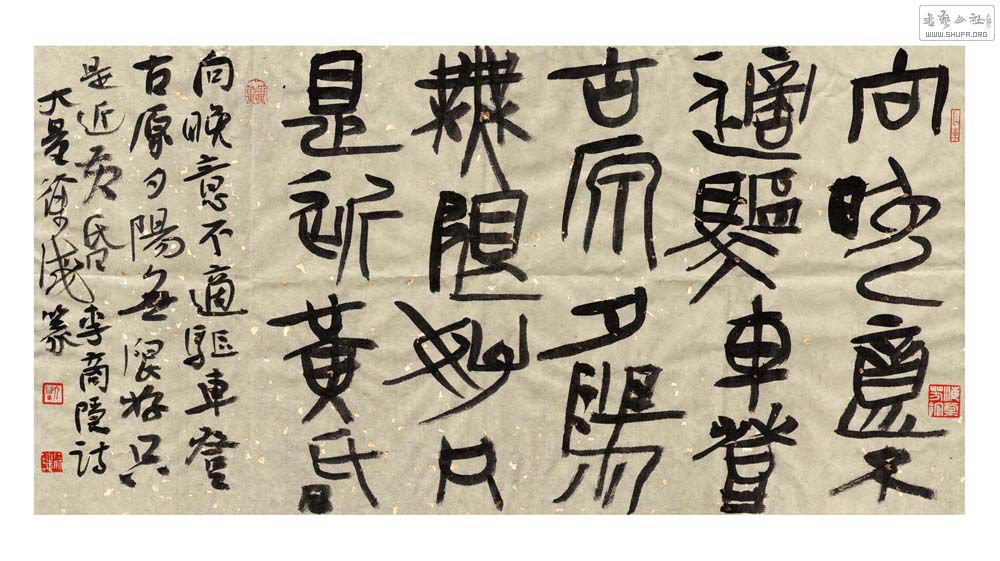 書藝公社
WWW.SHUFA.ORG
向晚意不
適驅車登
古原夕陽
無限好只
是近黃昏
向晚意不適驅車登
古原夕陽無限好只
是近黃昏李商隱詩
大徐篆